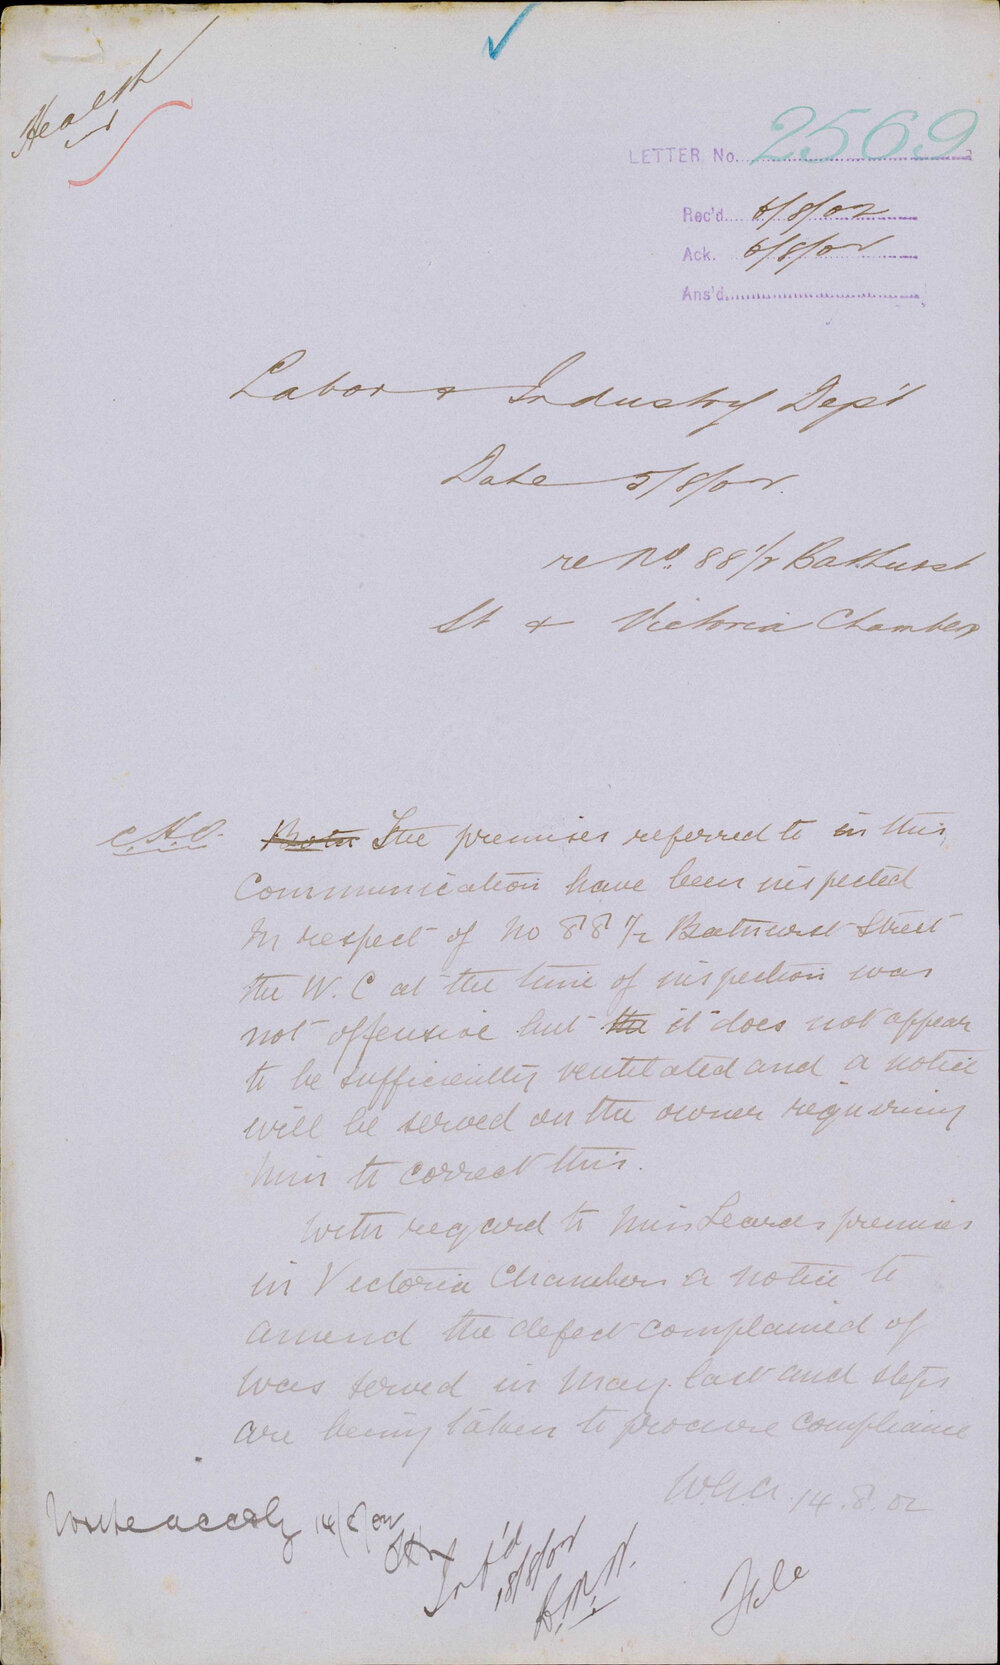 Health
LETTER No. 2569
Rec'd 6/8/02
Ack. 6/8/02
Ans'd
Labor & Industry Dep't
Date 5/8/02.
re No. 88 1/2 Bathurst
St & Victoria Chambers
C.H.O. Both The premises referred to in this
Communication have been inspected
In respect of No 88 1/2 Bathurst Street
the W. C at the time of inspection was
not offensive but the it does not appear
to be sufficiently ventilated and a notice
will be served on the owner requiring
him to correct this.
With regard to Miss premises
in Victoria Chambers a notice to
amend the defect complained of
was served in May last and steps
are being taken to procure compliance
14.8.02
Write accdly 14/8/02
Inf'd
18/8/02
File